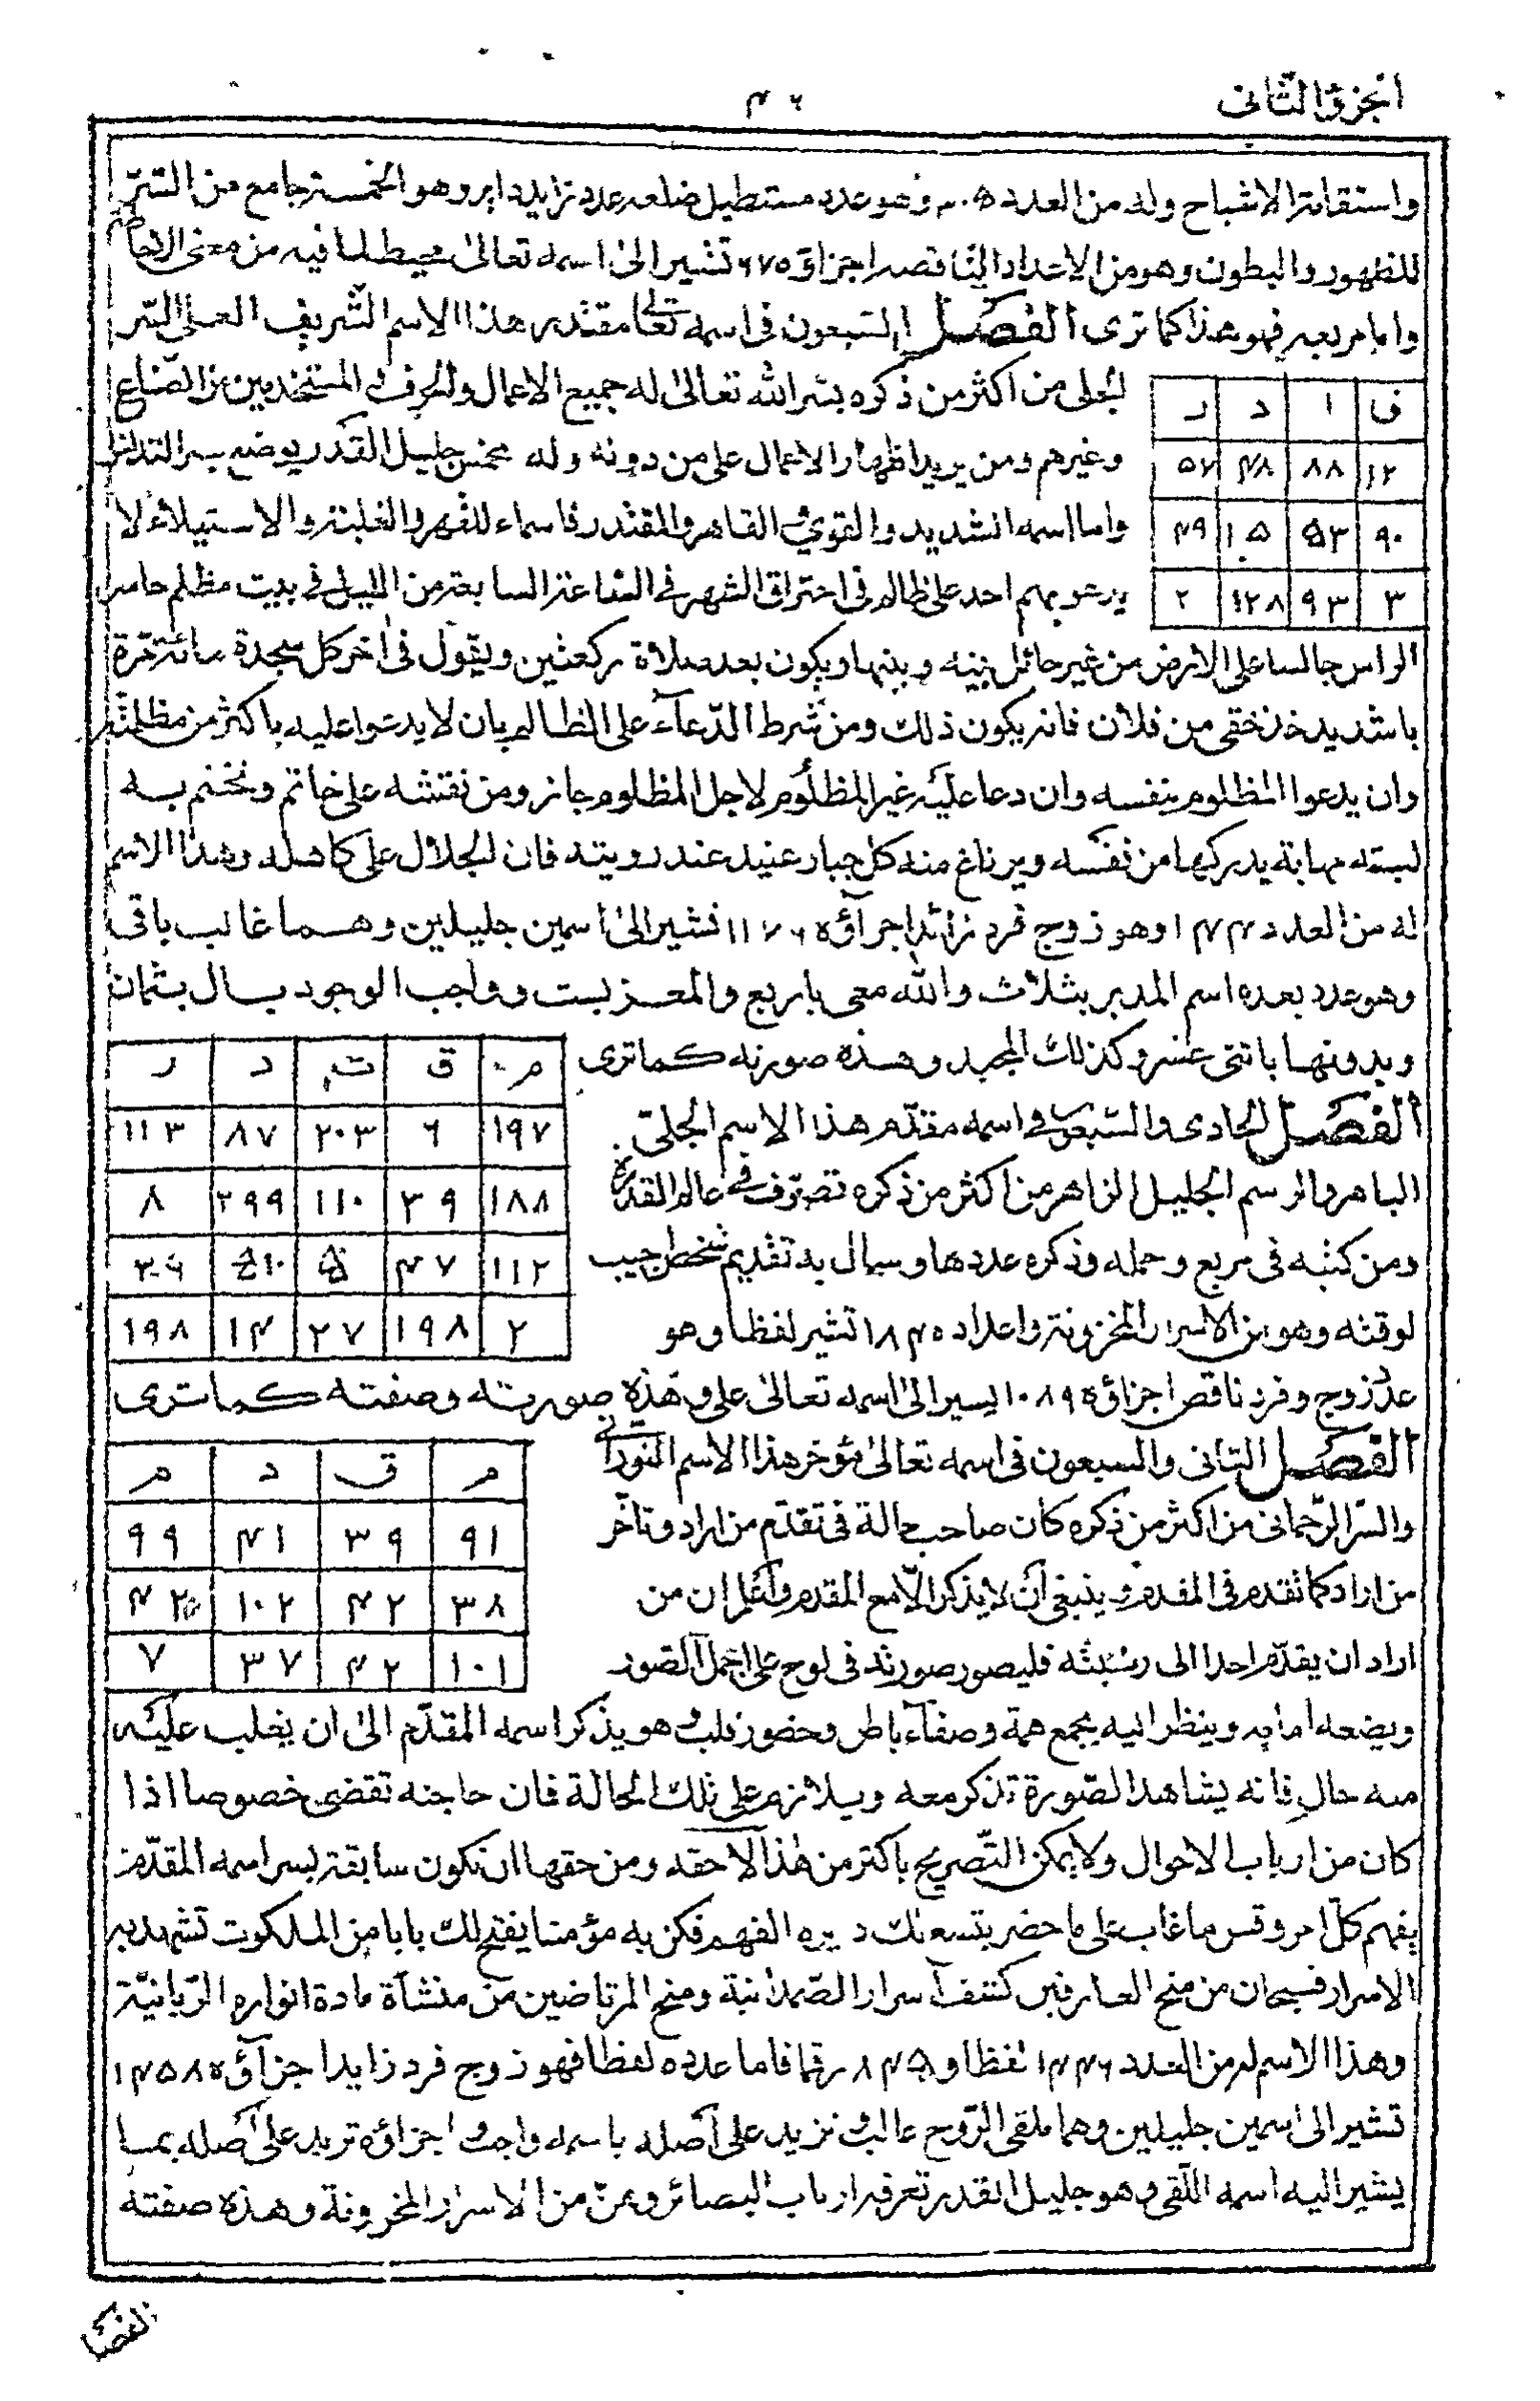 الجزؤ الثانى
٤٦
واستقامة الاشباح وله من العدد ٣٠٥ وهو عدد مستطيل ضلعه عدد زايد دابر وهو الخمسة جامع من السر
للظهور والبطون وهو من الاعداد الناقصه اجزاؤه ٦٧٥ تشير الى اسمه تعالى محيط لما فيه من معنى الاحاطة
واما مربعه فهو هذا كما ترى الفصل السبعون فى اسمه تعالى مقتدر هذا الاسم الشريف العلى السر
الجلى من اكثر من ذكره يسر الله تعالى له جميع الاعمال والحرف فى المستخدمين من الصناع
وغيرهم ومن يريد اظهار الاعمال على من دونه وله مخمس جليل القدر يوضع بسر التداخل
واما اسمه الشديد والقوى والقاهر والمقتدر فاسماء للقهر والغلبة والاستيلاء لا
يدعو بهم احد على ظالم فى احتراق الشهر فى الساعة السابعة من الليل فى بيت مظلم حاسر
ق ا د ر
١٢ ٨٨ ٤٨ ٥٧
٩٠ ٥٣ ١٥ ٤٩
٣ ٩٣ ١٢٨ ٢
الراس جالسا على الارض من غير حائل بينه وبينها ويكون بعد صلاة ركعتين ويقول فى اخر كل سجدة مائة مرة
يا شديد خذ حقى من فلان فانه يكون ذلك ومن شرط الدعآء على الظالم بان لا يدعوا عليه باكثر من مظلمته
وان يدعوا المظلوم بنفسه وان دعا عليه غير المظلوم لاجل المظلوم جائز ومن نقشه على خاتم وتختم به
لبسته مهابة يدركها من نفسه ويرتاع منه كل جبار عنيد عند رويته فان الجلال على كاهله وهذا الاسم
له من العدد ١٤٤ وهو زوج فرد زائد اجزآؤه ١١٧٦ تشير الى اسمين جليلين وهما غالب باقى
وهو عدد بعده اسم المدبر بثلاث والله معى باربع والمعز بست وواجب الوجود بسال بثمان
وبدونها باثنى عشر وكذلك المجيد وهذه صورته كماترى
م ق ت د ر
١٩٧ ٦ ٢٠٣ ٨٧ ١١٣
١٨٨ ٣٩ ١١٠ ٢٩٩ ٨
١١٢ ٤٧
٢ ١٩٨ ٢٧ ١٤ ١٩٨
الفصل الحادى والسبعون فى اسمه مقدم هذا الاسم الجلى
الباهر والرسم الجليل الزاهر من اكثر من ذكره تصرف فى عالم القدرة
ومن كتبه فى مربع وحمله وذكره عددها وسال به تقديم شخص اجيب
لوقته وهو من الاسرار المخزونة واعداده ١٨٤ تشير لفظا وهو
عدد زوج وفرد ناقص اجزاؤه ١٠٨٩ يسير الى اسمه تعالى على وهذه صورته وصفته كماترى
الفصل الثانى والسبعون فى اسمه تعالى مؤخر هذا الاسم النورانى
والسر الرحمانى من اكثر من ذكره كان صاحب حالة فى تقدم من اراد وتاخر
من اراد كما تقدم فى المقدم وينبغى ان لا يذكر الا مع المقدم واعلم ان من
اراد ان يقدم احدا الى رتبته فليصور صورته فى لوح على اجمل الصور
م ق د م
٩١ ٣٩ ٤١ ٩٩
٣٨ ٤٢ ١٠٢
١٠١ ٤٢ ٣٧ ٧
ويضعه امامه وينظر اليه بجمع همة وصفآء باطن وحضور قلب وهو يذكر اسمه المقدم الى ان يغلب عليه
منه حال فانه يشاهد الصورة تذكر معه ويلازم على تلك الحالة فان حاجته تقضى خصوصا اذا
كان من ارباب الاحوال ولا يمكن التصريح باكثر من هذا لاحقه ومن حقها ان تكون سابقة لسر اسمه المقدم
يفهم كل امر وقس ما غاب على ما حضر الفهم فكن به مؤمنا يفتح لك بابا من الملكوت تشهد به
الاسرار فسبحان من منح العارفين كشف اسرار الصمدانية ومنح المرتاضين من منشأة مادة انواره الربانية
وهذا الاسم له من العدد ١٤٤٦ لفظا و ٨٤٥ رقما فاما عدده لفظا فهو زوج فرد زايدا جزآؤه ١٤٥٨
تشير الى اسمين جليلين وهما ملقى الروح غالب تزيد على اصله باسمه واجد واجزاؤه تريد على اصله بما
يشير اليه اسمه القوى وهو جليل القدر تعرفه ارباب البصائر وممن من الاسرار المخزونة وهذه صفته
الفصل